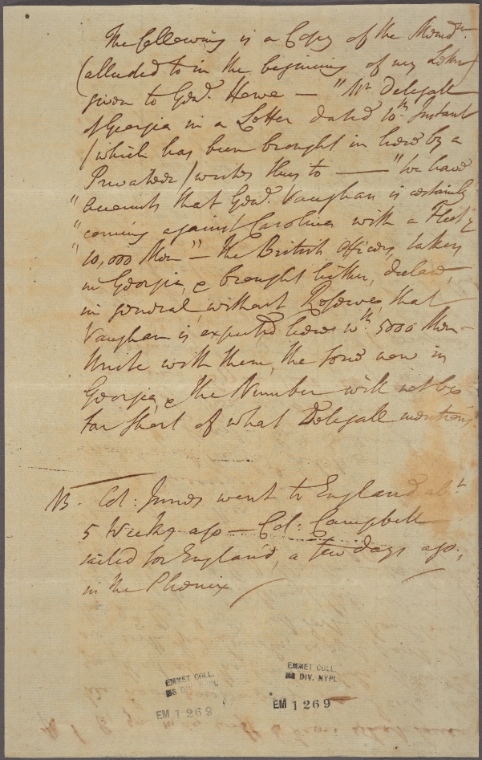 The following is a Copy of the Memdm.
(alluded to in the begining of my Letter)
given to Genl. Howe — "Mr. Delegall
of Georgia in a Letter dated 10th Instant
/which has been brought in here by a
Privateer/ writes thus to — "We have
"Accounts that Genl. Vaughan is certainly
"coming against Carolina with a Fleet &
"10,000 Men" — the British Officers, taken
in Georgia, & brought hither, declare,
in general, without Reserve, that
Vaughan is expected here wth. 5000 Men —
Unite with them, the force now in
Georgia, & the Number will not be
far short of what Delegall mentions
NB. Col: Innes went to England abt.
5 Weeks ago — Col: Campbell
sailed for England, a few days ago,
in the Phoenix.
EMMET COLL.
EMMET COLL.
MS DIV. NYPL
EM 1269
EM 1269